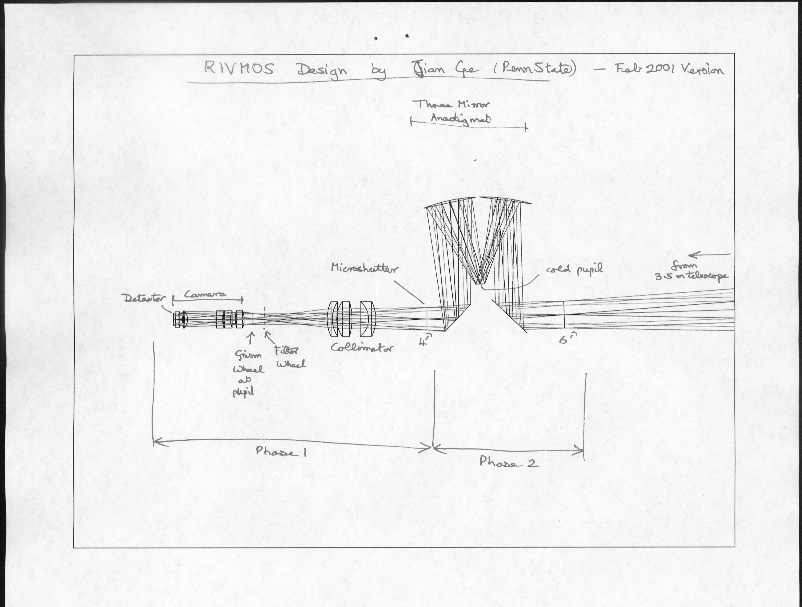 RIVMOS Design by Jian Ge (Penn State) — Feb 2001 Version
Three Mirror
Anastigmat
Microshutter
cold pupil
from
3.5 m telescope
Detector
Camera
Grism
Wheel
at
pupil
Filter
Wheel
Collimator
4"
6"
Phase 1
Phase 2